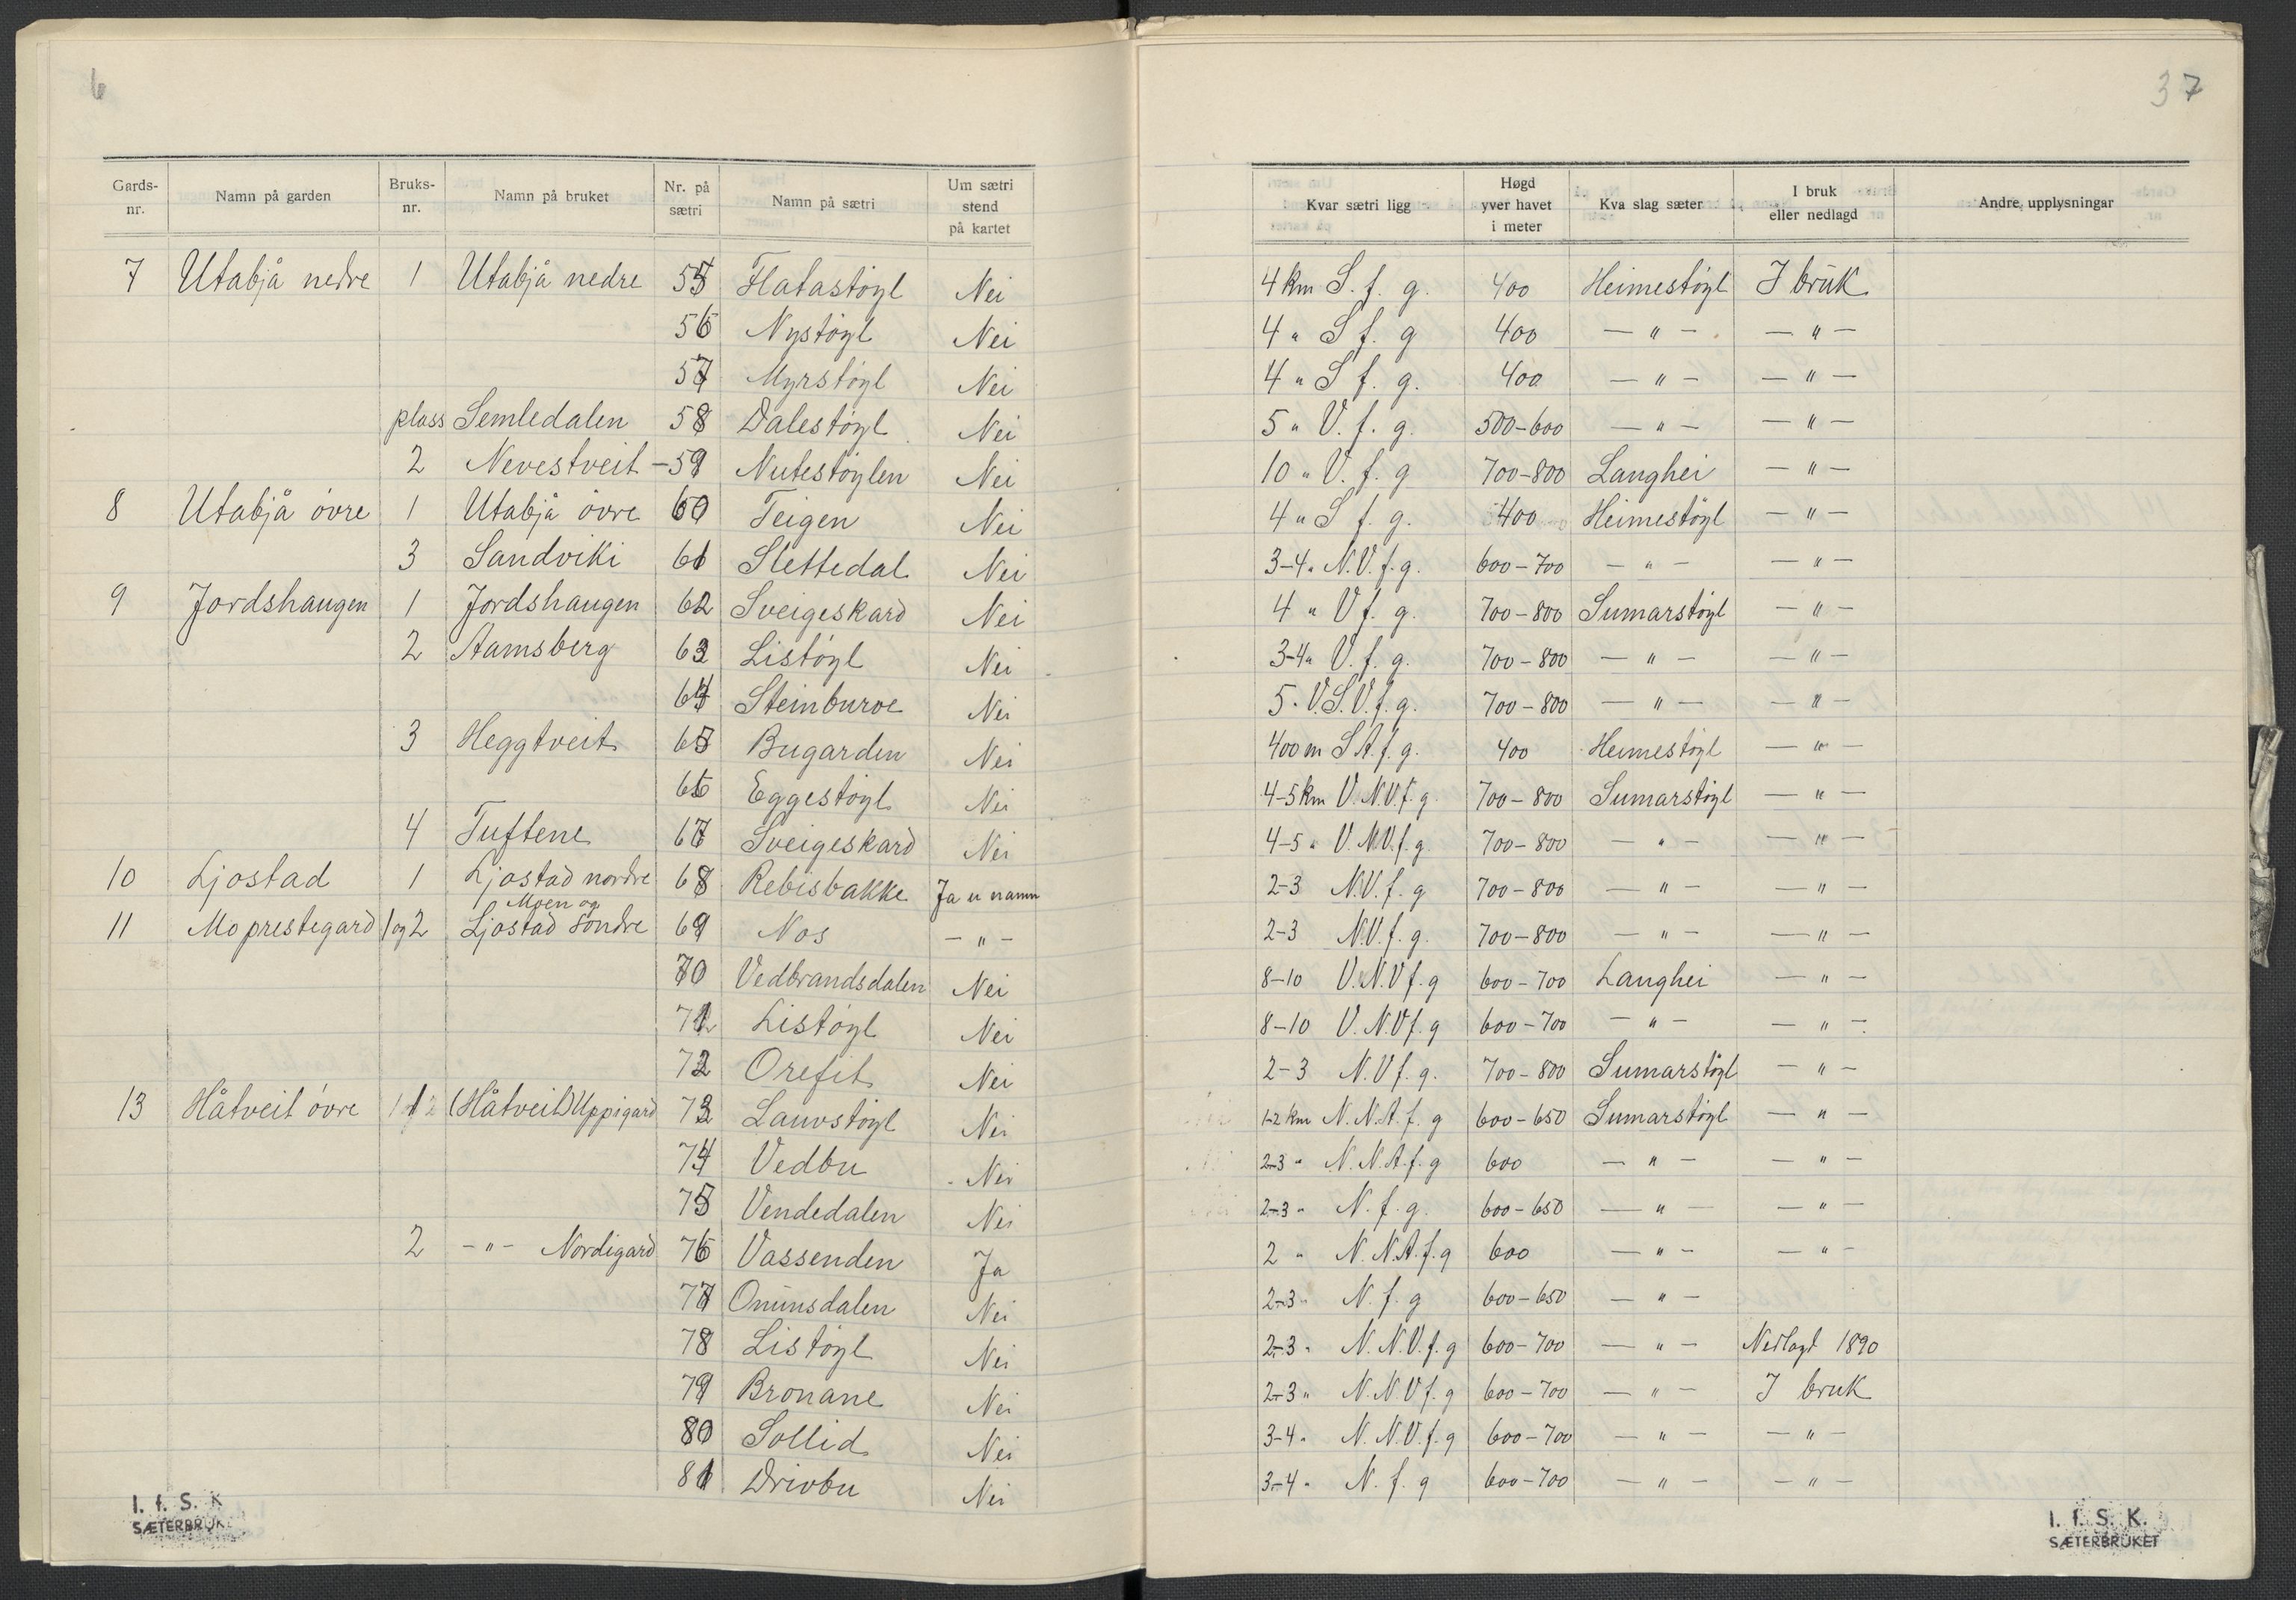 6
37
Gards-nr. Namn på garden Bruks-nr. Namn på bruket Nr. på sætri Namn på sætri Um sætri stend på kartet Kvar sætri ligg Høgd yver havet i meter Kva slag sæter I bruk eller nedlagd Andre upplysningar
7 Utabjå nedre 1 Utabjå nedre 55 Flatastöyl Nei 4 km S. f. g. 400 Heimestöyl I bruk
56 Nystöyl Nei 4 " S f. g 400 — " — — " —
57 Myrstöyl Nei 4 " S f. g. 400 — " — — " —
plass Semledalen 58 Dalestöyl Nei 5 " V. f. g. 500-600 — " — — " —
2 Nevestveit - 59 Nutestöylen Nei 10 " V. f. g 700-800 Langhei — " —
8 Utabjå övre 1 Utabjå övre 60 Teigen Nei 4 " S f. g. 400 Heimestöyl — " —
3 Sandviki 61 Slettedal Nei 3-4 " N.V. f. g. 600-700 — " — — " —
9 Jordshaugen 1 Jordshaugen 62 Sveigeskard Nei 4 " V f. g. 700-800 Sumarstöyl — " —
2 Aamsberg 63 Listöyl Nei 3-4 " V. f. g. 700-800 — " — — " —
64 Steinburoe Nei 5 " V.S.V. f. g. 700-800 — " — — " —
3 Heggtveit 65 Bugarden Nei 400 m S A. f. g. 400 Heimestöyl — " —
66 Eggestöyl Nei 4-5 km V. N V. f. g. 700-800 Sumarstöyl — " —
4 Tuftene 67 Sveigeskard Nei 4-5 " V. N.V. f. g. 700-800 — " — — " —
10 Ljostad 1 Ljostad nordre 68 Rebisbakke Ja u namn 2-3 N.V. f. g 700-800 — " — — " —
Moen og
11 Mo prestegard 1 og 2 Ljostad söndre 69 Nos — " — 2-3 N.V. f. g. 700-800 — " — — " —
70 Vedbrandsdalen Nei 8-10 V.N.V f. g 600-700 Langhei — " —
71 Listöyl Nei 8-10 V.N.V f. g 600-700 — " — — " —
72 Orefit Nei 2-3 N.V f. g. 700-800 Sumarstöyl — " —
13 Håtveit övre 1 (Håtveit) Uppigard 73 Lauvstöyl Nei 1-2 km N. N.A. f. g 600-650 Sumarstöyl — " —
74 Vedbu Nei 2-3 " N. N.A. f. g 600 — " — — " —
75 Vendedalen Nei 2-3 " N. f. g. 600-650 — " — — " —
2 — " — Nordigard 76 Vassenden Ja 2 " N. N.A. f. g 600 — " — — " —
77 Onunsdalen Nei 2-3 " N. f. g 600-650 — " —
78 Listöyl Nei 2-3 " N. N.V. f. g 600-700 — " — Nedlagt 1890
79 Bronane Nei 2-3 " N. N V f. g 600-700 — " — I bruk
80 Sollid Nei 3-4 " N. N.V. f. g 600-700 — " — — " —
81 Drivbu Nei 3-4 " N. f. g 600-700 — " — — " —
I. f. S. K
SÆTERBRUK
I. f. S. K.
SÆTERBRUKET